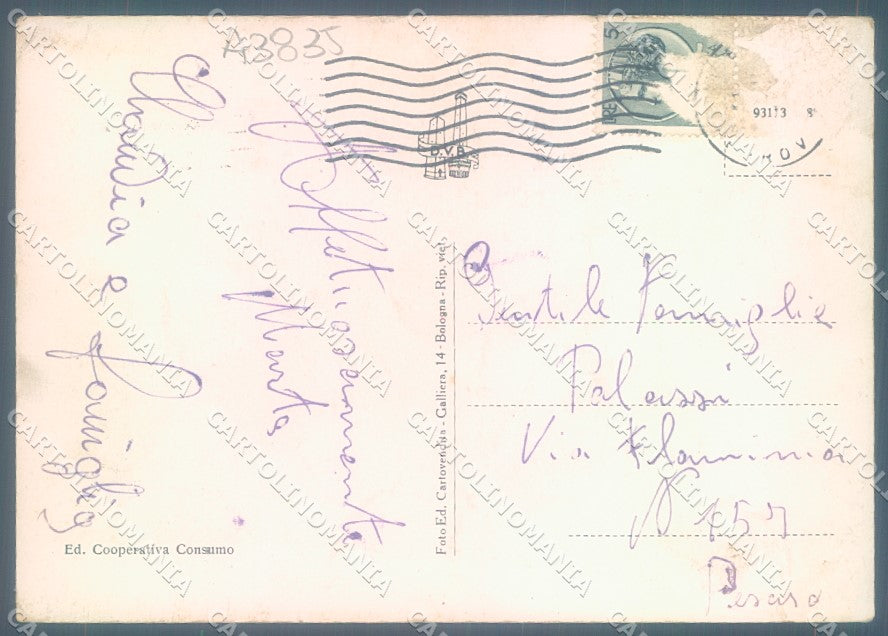 R43835
D.V.B.
93113 8
ROV
Affettuosamente
Marta
Claudia e famiglia
Gentile Famiglia
Palassi
Via Flaminia
N 157
Pesaro
Foto Ed. Cartovendita - Galliera, 14 - Bologna - Rip. viet.
Ed. Cooperativa Consumo
CARTOLINOMANIA